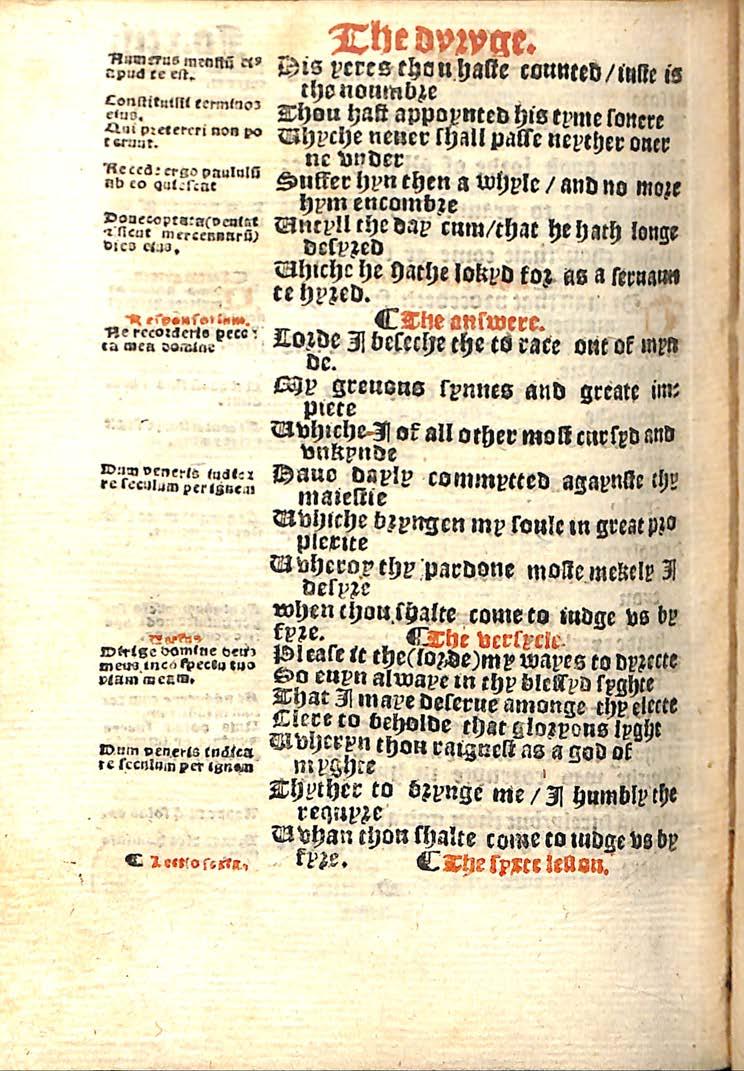 The dyryge.
Numerus mensiū eiꝰ
apud te est.
Constituisti terminos
eius.
Qui pretereri non po
terunt.
Recede ergo paululū
ab eo quiescat
Donec optata(veniat
⁊ sicut mercennarii)
dies eius.
Responsorium.
Ne recorderis pecca
ta mea domine
Dum veneris iudica
re seculum per ignem
Versus
Dirige domine deus
meus in cōspectu tuo
viam meam.
Dum veneris indica
re seculum per ignem
¶ Lectio sexta.
His yeres thou haste counted / iuste is
the noumbre
Thou hast appoynted his tyme sonere
Whyche neuer shall passe neyther ouer
ne vnder
Suffer hyn then a whyle / and no more
hym encombre
Untyll the day cum/that he hath longe
desyred
Whiche he hathe lokyd for as a seruaun
te hyred.
¶ The answere.
Lorde I beseche the to race out of myn
de.
My greuous synnes and greate im:
piete
Uvhiche I of all other most cursyd and
vnkynde
Haue dayly commytted agaynste thy
maiestie
Uvhiche bryngen my soule in great pro
plexite
Uvheroy thy pardone moste mekely I
desyre
when thou shalte come to iudge vs by
fyre. ¶ The versycle.
Please it the(lorde)my wayes to dyrecte
So euyn alwaye in thy blessyd syghte
That I maye deserue amonge thy electe
Clere to beholde that gloryous lyght
Uvheryn thou raignest as a god of
myghte
Thyther to brynge me / I humbly the
requyre
Uvhan thou shalte come to iudge vs by
fyre. ¶ The syxte lesson.